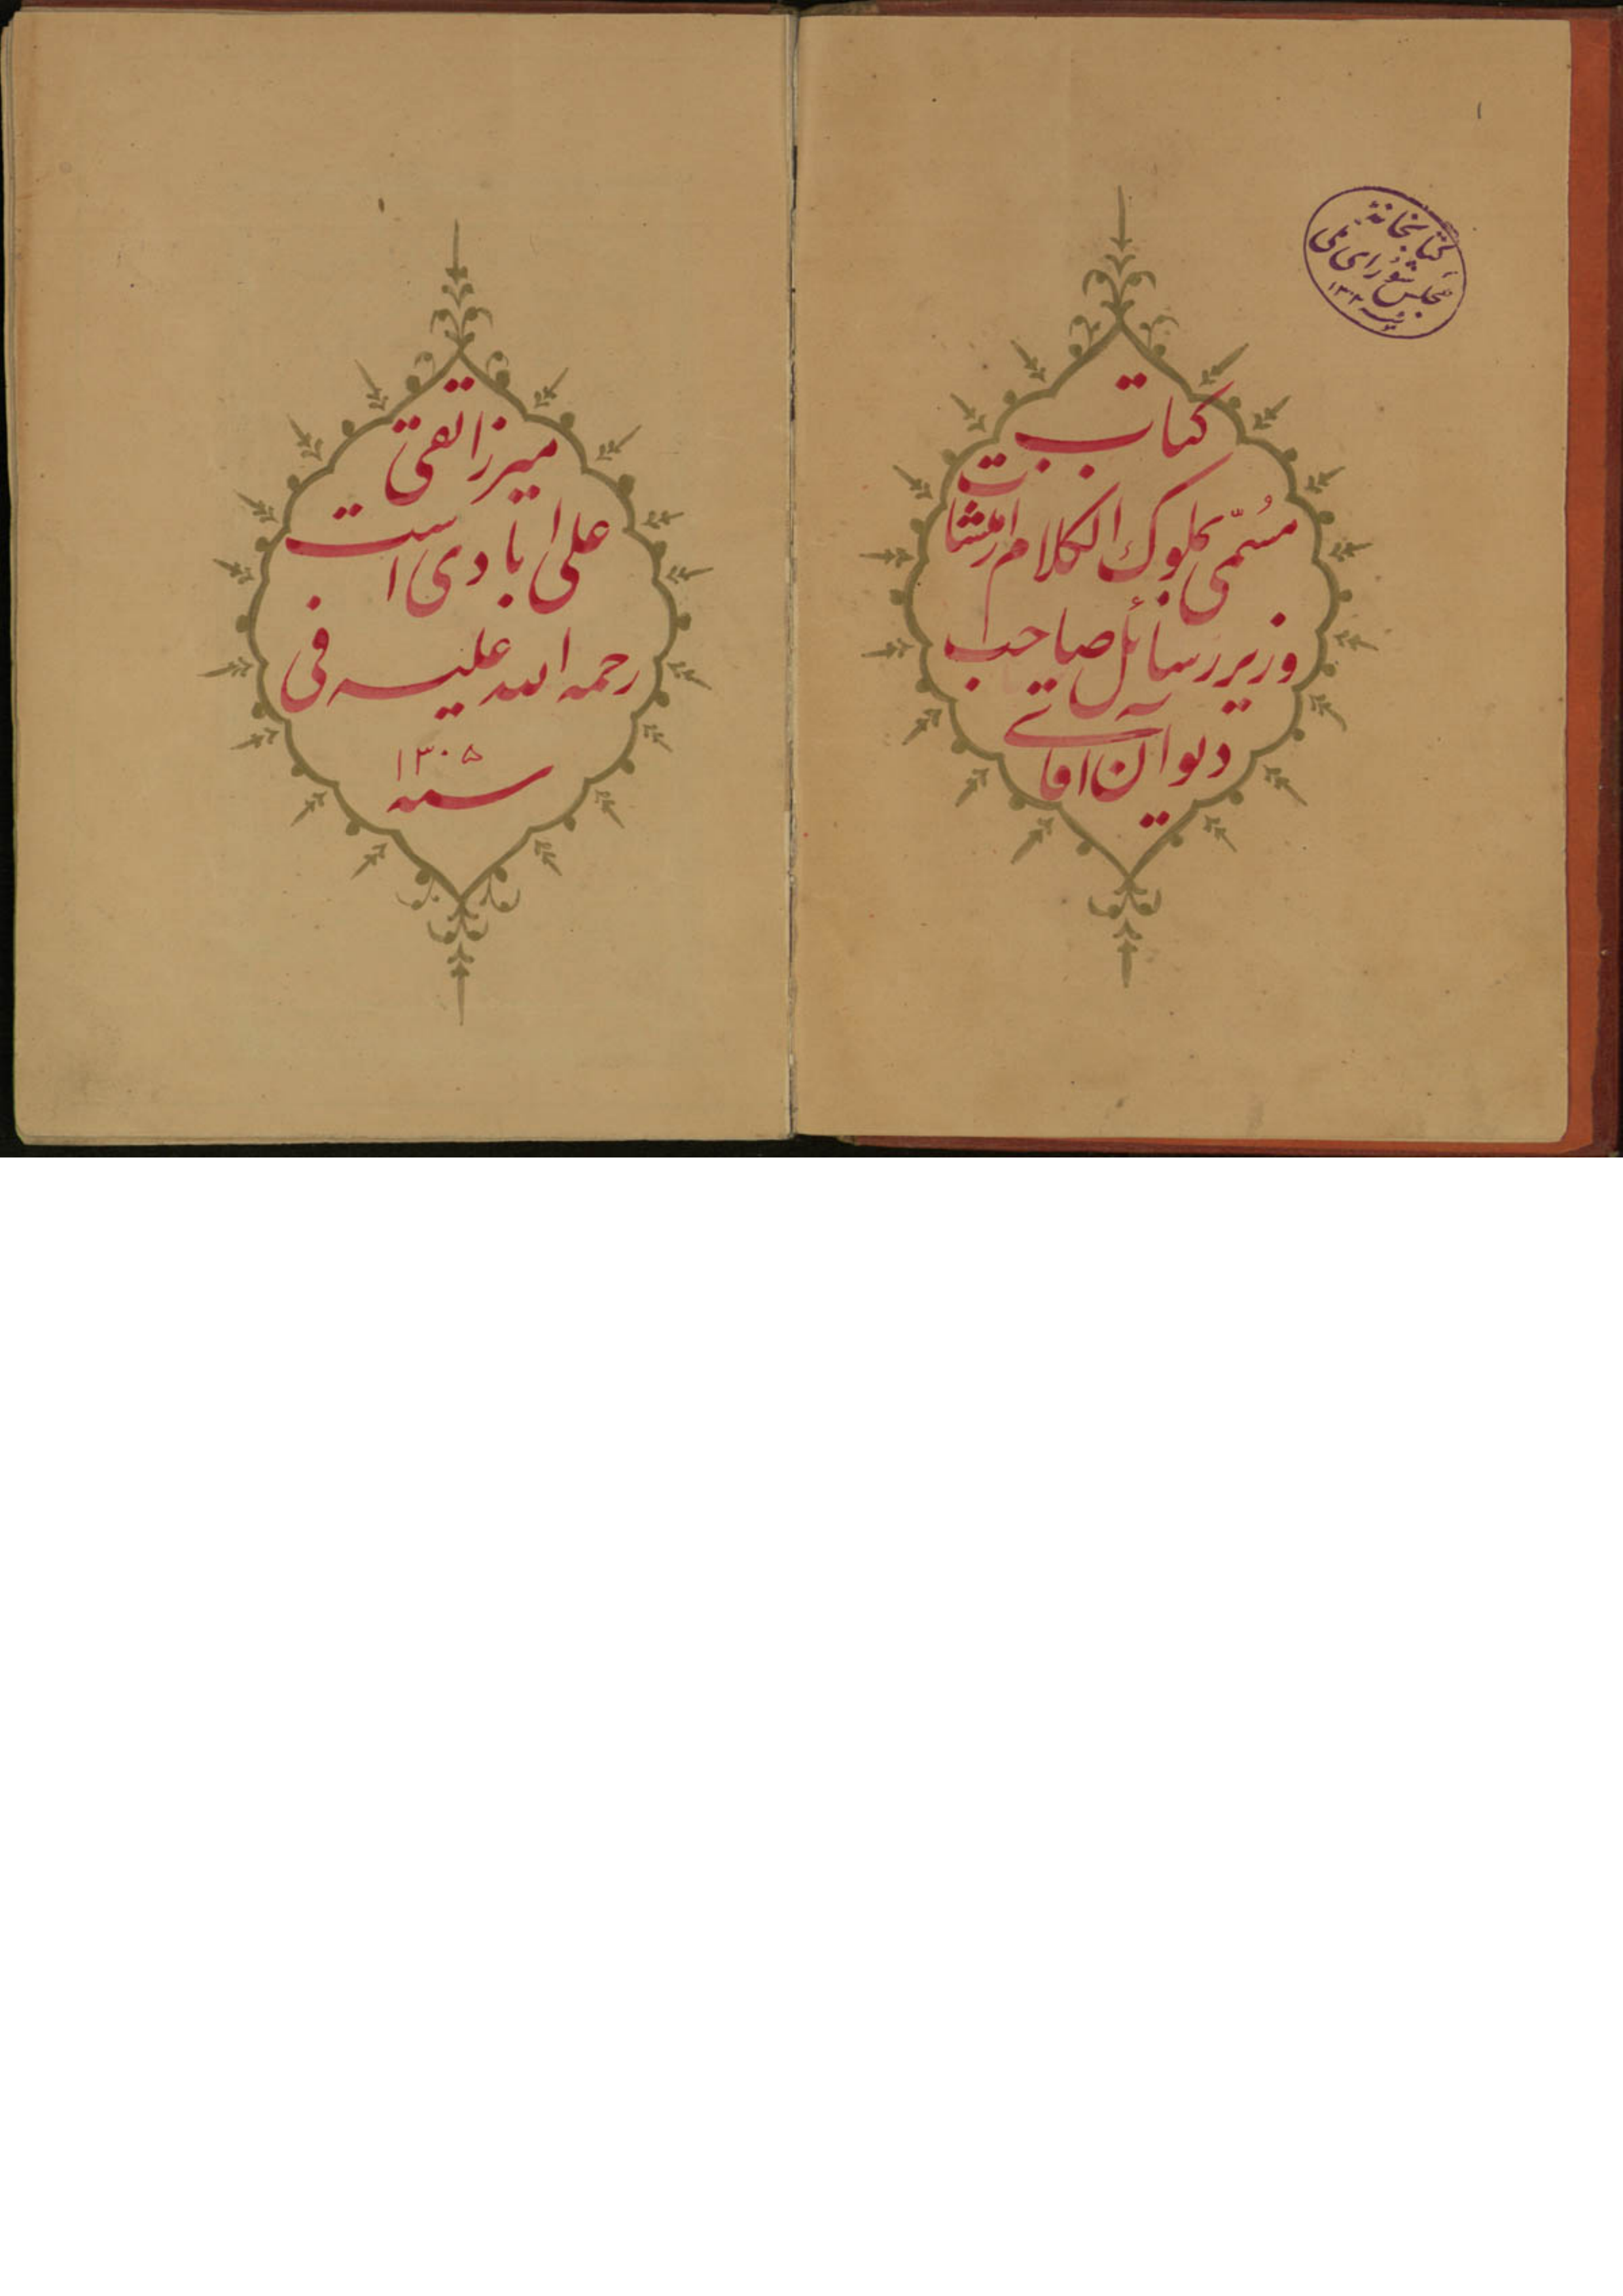 ۱
کتابخانهٔ
مجلس شورای ملی
کتاب
مُسمّی بملوک الکلام از منشآت
وزیر رسائل صاحب
دیوان آقای
میرزا تقی
علی ابادی است
رحمه الله علیه فی
سنه ۱۳۰۵